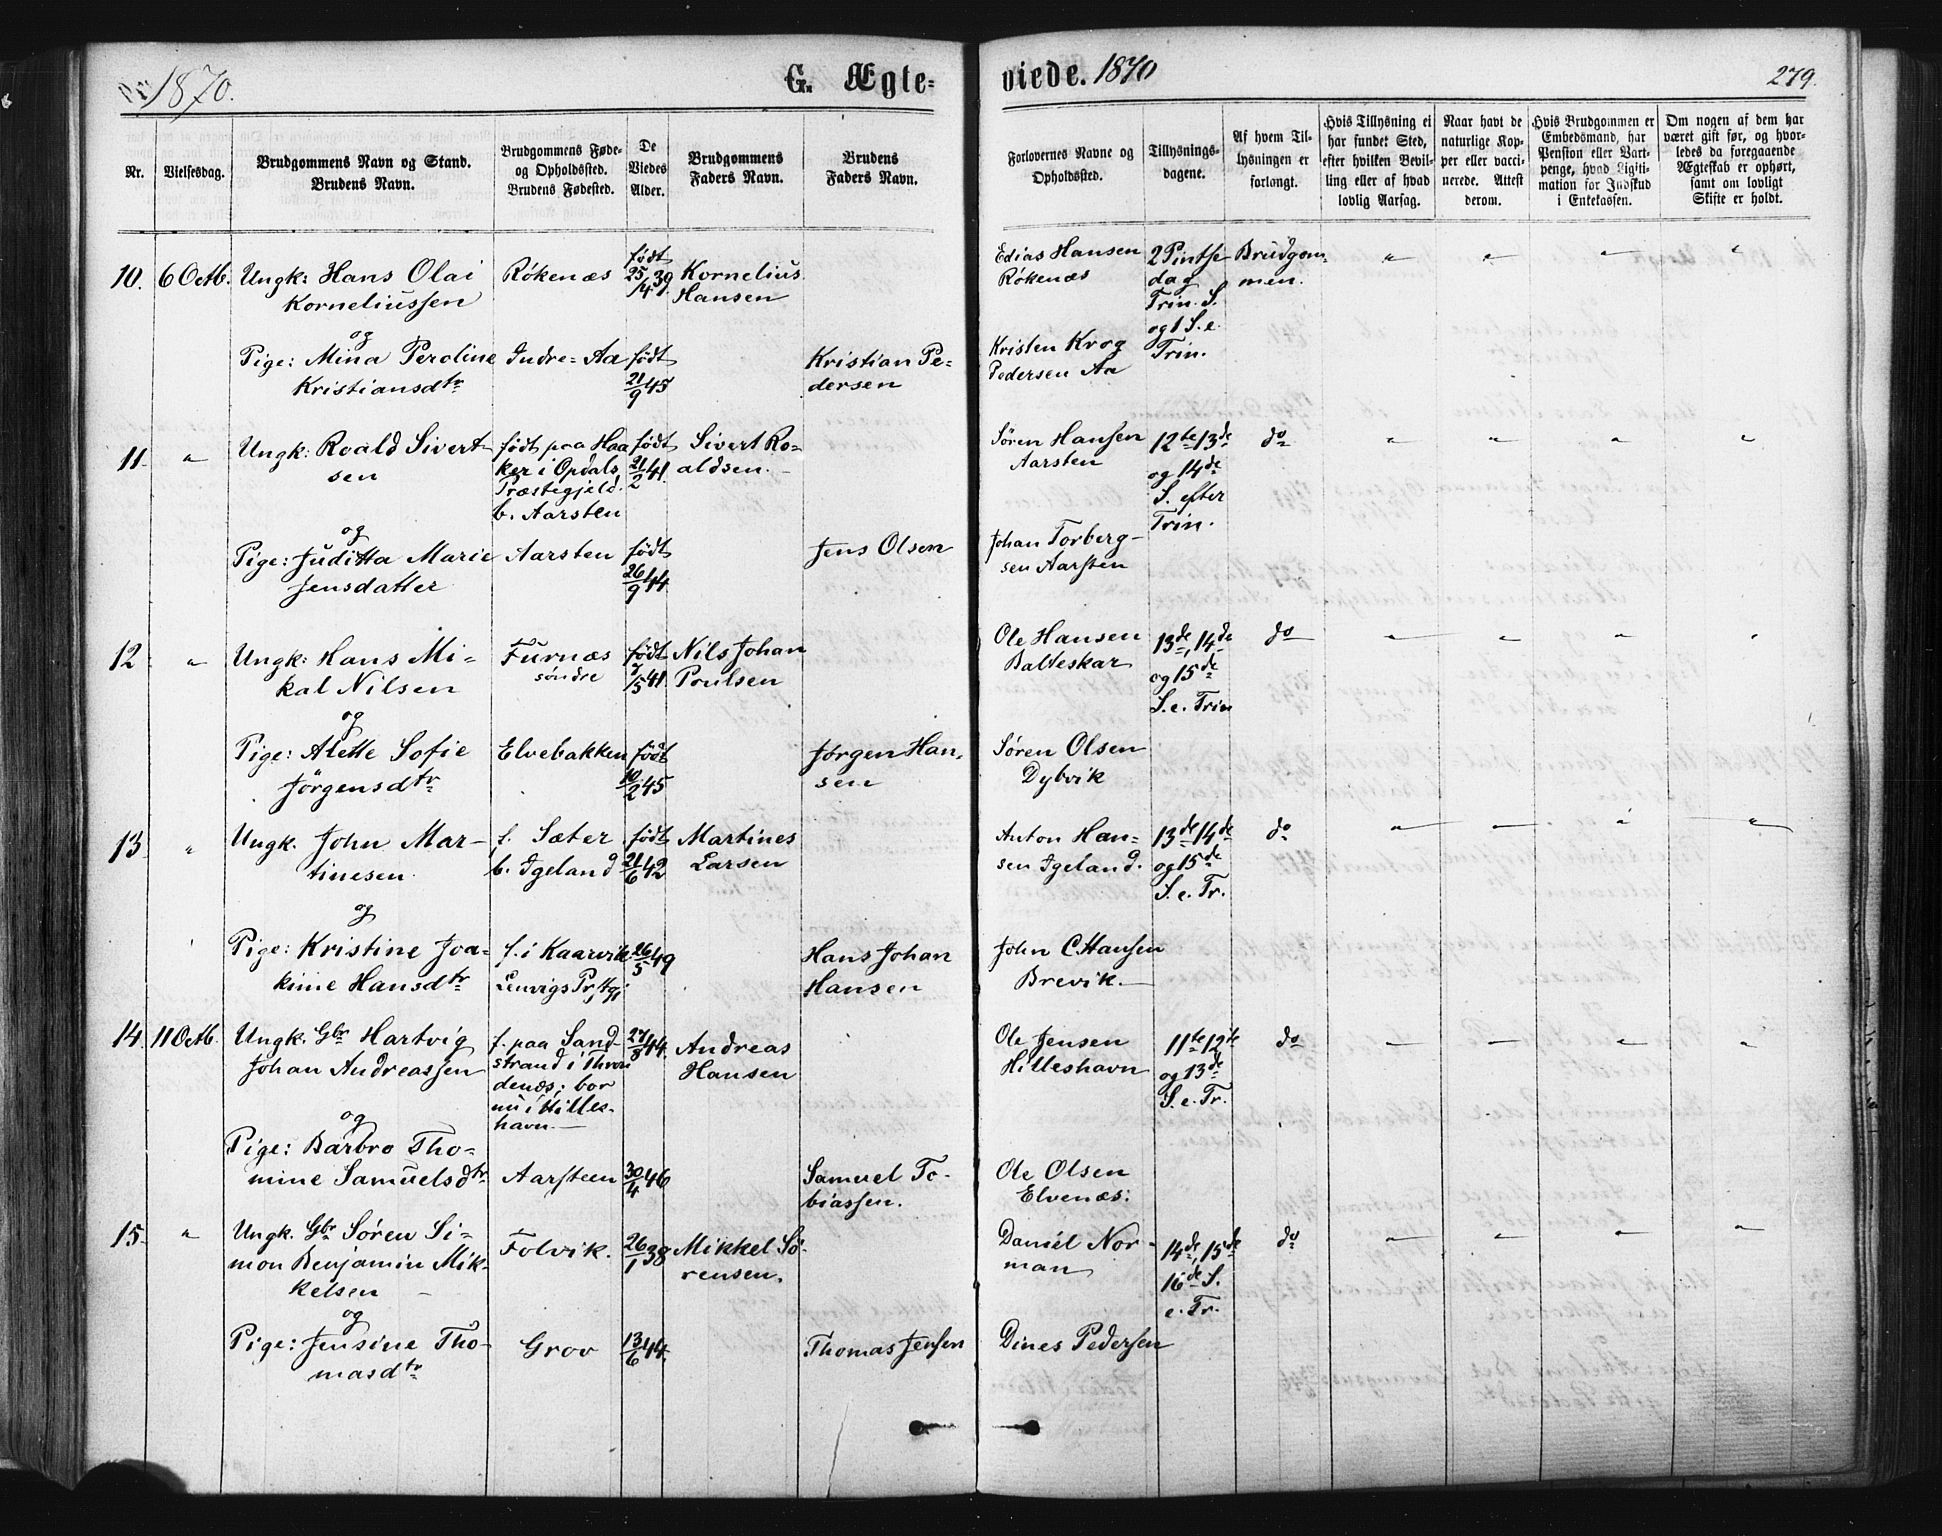 1870.
G. Ægte-
viede. 1870
279.
Nr.
Vielsesdag.
Brudgommens Navn og Stand.
Brudens Navn.
Brudgommens Føde-
og Opholdssted.
Brudens Fødested.
De
Viedes
Alder.
Brudgommens
Faders Navn.
Brudens
Faders Navn.
Forlovernes Navne og
Opholdssted.
Tillysnings-
dagene.
Af hvem Til-
lysningen er
forlangt.
Hvis Tillysning ei
har fundet Sted,
efter hvilken Bevil-
ling eller af hvad
lovlig Aarsag.
Naar havt de
naturlige Kop-
per eller vacci-
nerede. Attest
derom.
Hvis Brudgommen er
Embedsmand, har
Pension eller Vart-
penge, hvad Ligiti-
mation for Indskud
i Enkekassen.
Om nogen af dem har
været gift før, og hvor-
ledes da foregaaende
Ægteskab er ophørt,
samt om lovligt
Skifte er holdt.
10. 6 Octb.
Ungk: Hans Olai
Korneliussen
og
Pige: Mina Peroline
Kristiansdtr
Rökenæs
Indre-Aa
født
25/4 39.
født
21/9 45
Kornelius
Hansen
Kristian Pe-
dersen
Edias Hansen
Rökenæs
Kristen Krog
Pedersen Aa
2 Pintse
dag
Trin. S.
og 1 S. e.
Trin.
Brudgom-
men.
" " " "
11. "
Ungk: Roald Sivert-
sen
og
Pige: Juditta Marie
Jensdatter
født paa Haa
ker i Opdals
Præstegjeld.
b. Aarsten
Aarsten
født
21/2 41.
født
26/9 44
Sivert Ro-
aldsen.
Jens Olsen
Sören Hansen
Aarsten
Johan Torberg-
sen Aarsten
12te 13de
og 14de
S. efter
Trin.
do
" " " "
12 "
Ungk: Hans Mi-
kal Nilsen
og
Pige: Alette Sofie
Jörgensdtr
Furnæs
söndre
Elvebakken
født
7/5 41.
født
10/2 45
Nils Johan
Poulsen
Jørgen Han-
sen
Ole Hansen
Balteskar
Søren Olsen
Dybvik
13de, 14de
og 15de
S. e. Trin
do
" " " "
13. "
Ungk. John Mar-
tinesen
og
Pige: Kristine Joa-
kime Hansdtr
f. Sæter
b. Igeland
f. i Kaarvik
Lenvigs Prstgj
født
21/6 42
26/5 49
Martines
Larsen
Hans Johan
Hansen
Anton Han-
sen Igeland.
John C. Hansen
Brevik.
13de 14de
og 15de
S. e. Tr.
do
" " " "
14. 11 Octb.
Ungk. Gbr Hartvig
Johan Andreassen
og
Pige: Barbro Tho-
mine Samuelsdtr
f. paa Sand
strand i Thron
denæs; bor
nu i Hilles-
havn.
Aarsteen
27/8 44.
30/4 46
Andreas
Hansen
Samuel To-
biassen.
Ole Jensen
Hilleshavn
Ole Olsen
Elvenæs.
11te 12te
og 13de
S. e. Tr.
do
" " " "
15. "
Ungk. Gbr Søren Si-
mon Benjamin Mik-
kelsen
og
Pige: Jensine Tho-
masdtr
Folvik.
Grov
26/1 38
13/6 44.
Mikkel Sö-
rensen.
Thomas Jensen
Daniel Nor-
man
Dines Pedersen
14de, 15de
16de S.
e. Tr.
do
" " " "